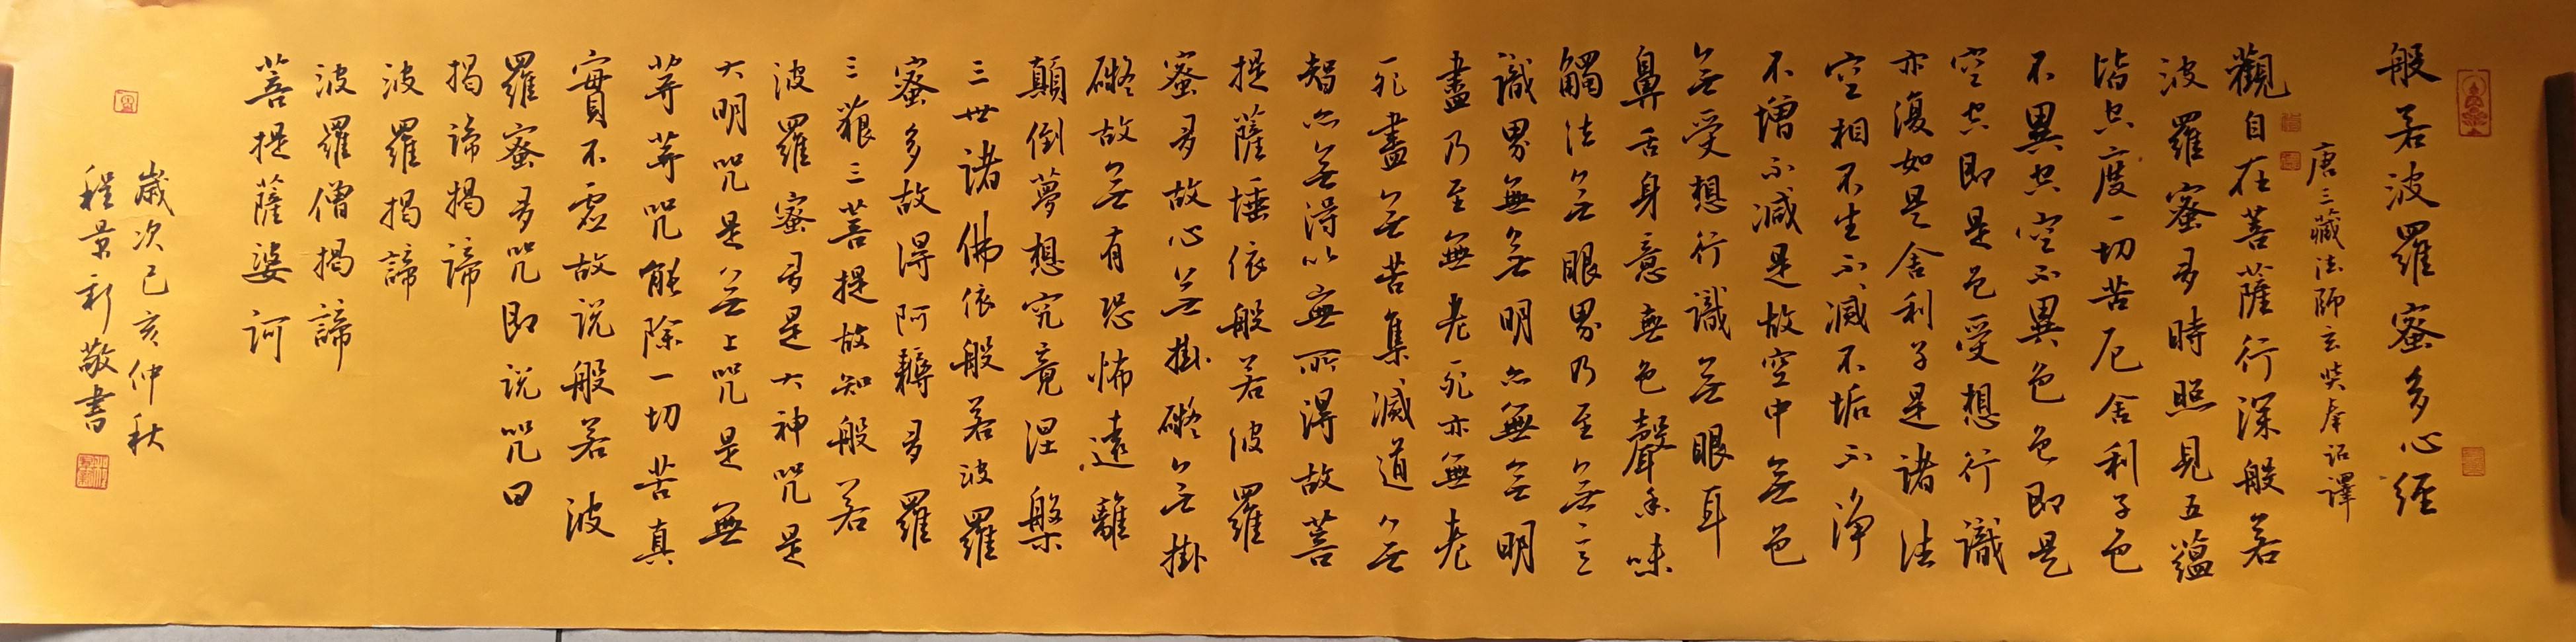 般若波羅蜜多心經
唐三藏法師玄奘奉詔譯
觀自在菩薩行深般若
波羅蜜多時照見五蘊
皆空度一切苦厄舍利子色
不異空空不異色色即是
空空即是色受想行識
亦復如是舍利子是諸法
空相不生不滅不垢不淨
不增不減是故空中無色
無受想行識無眼耳
鼻舌身意無色聲香味
觸法無眼界乃至無意
識界無無明亦無無明
盡乃至無老死亦無老
死盡無苦集滅道無
智亦無得以無所得故菩
提薩埵依般若波羅
蜜多故心無掛礙無掛
礙故無有恐怖遠離
顛倒夢想究竟涅槃
三世諸佛依般若波羅
蜜多故得阿耨多羅
三藐三菩提故知般若
波羅蜜多是大神咒是
大明咒是無上咒是無
等等咒能除一切苦真
實不虛故說般若波
羅蜜多咒即說咒曰
揭諦揭諦
波羅揭諦
波羅僧揭諦
菩提薩婆訶
歲次己亥仲秋
程景新敬書